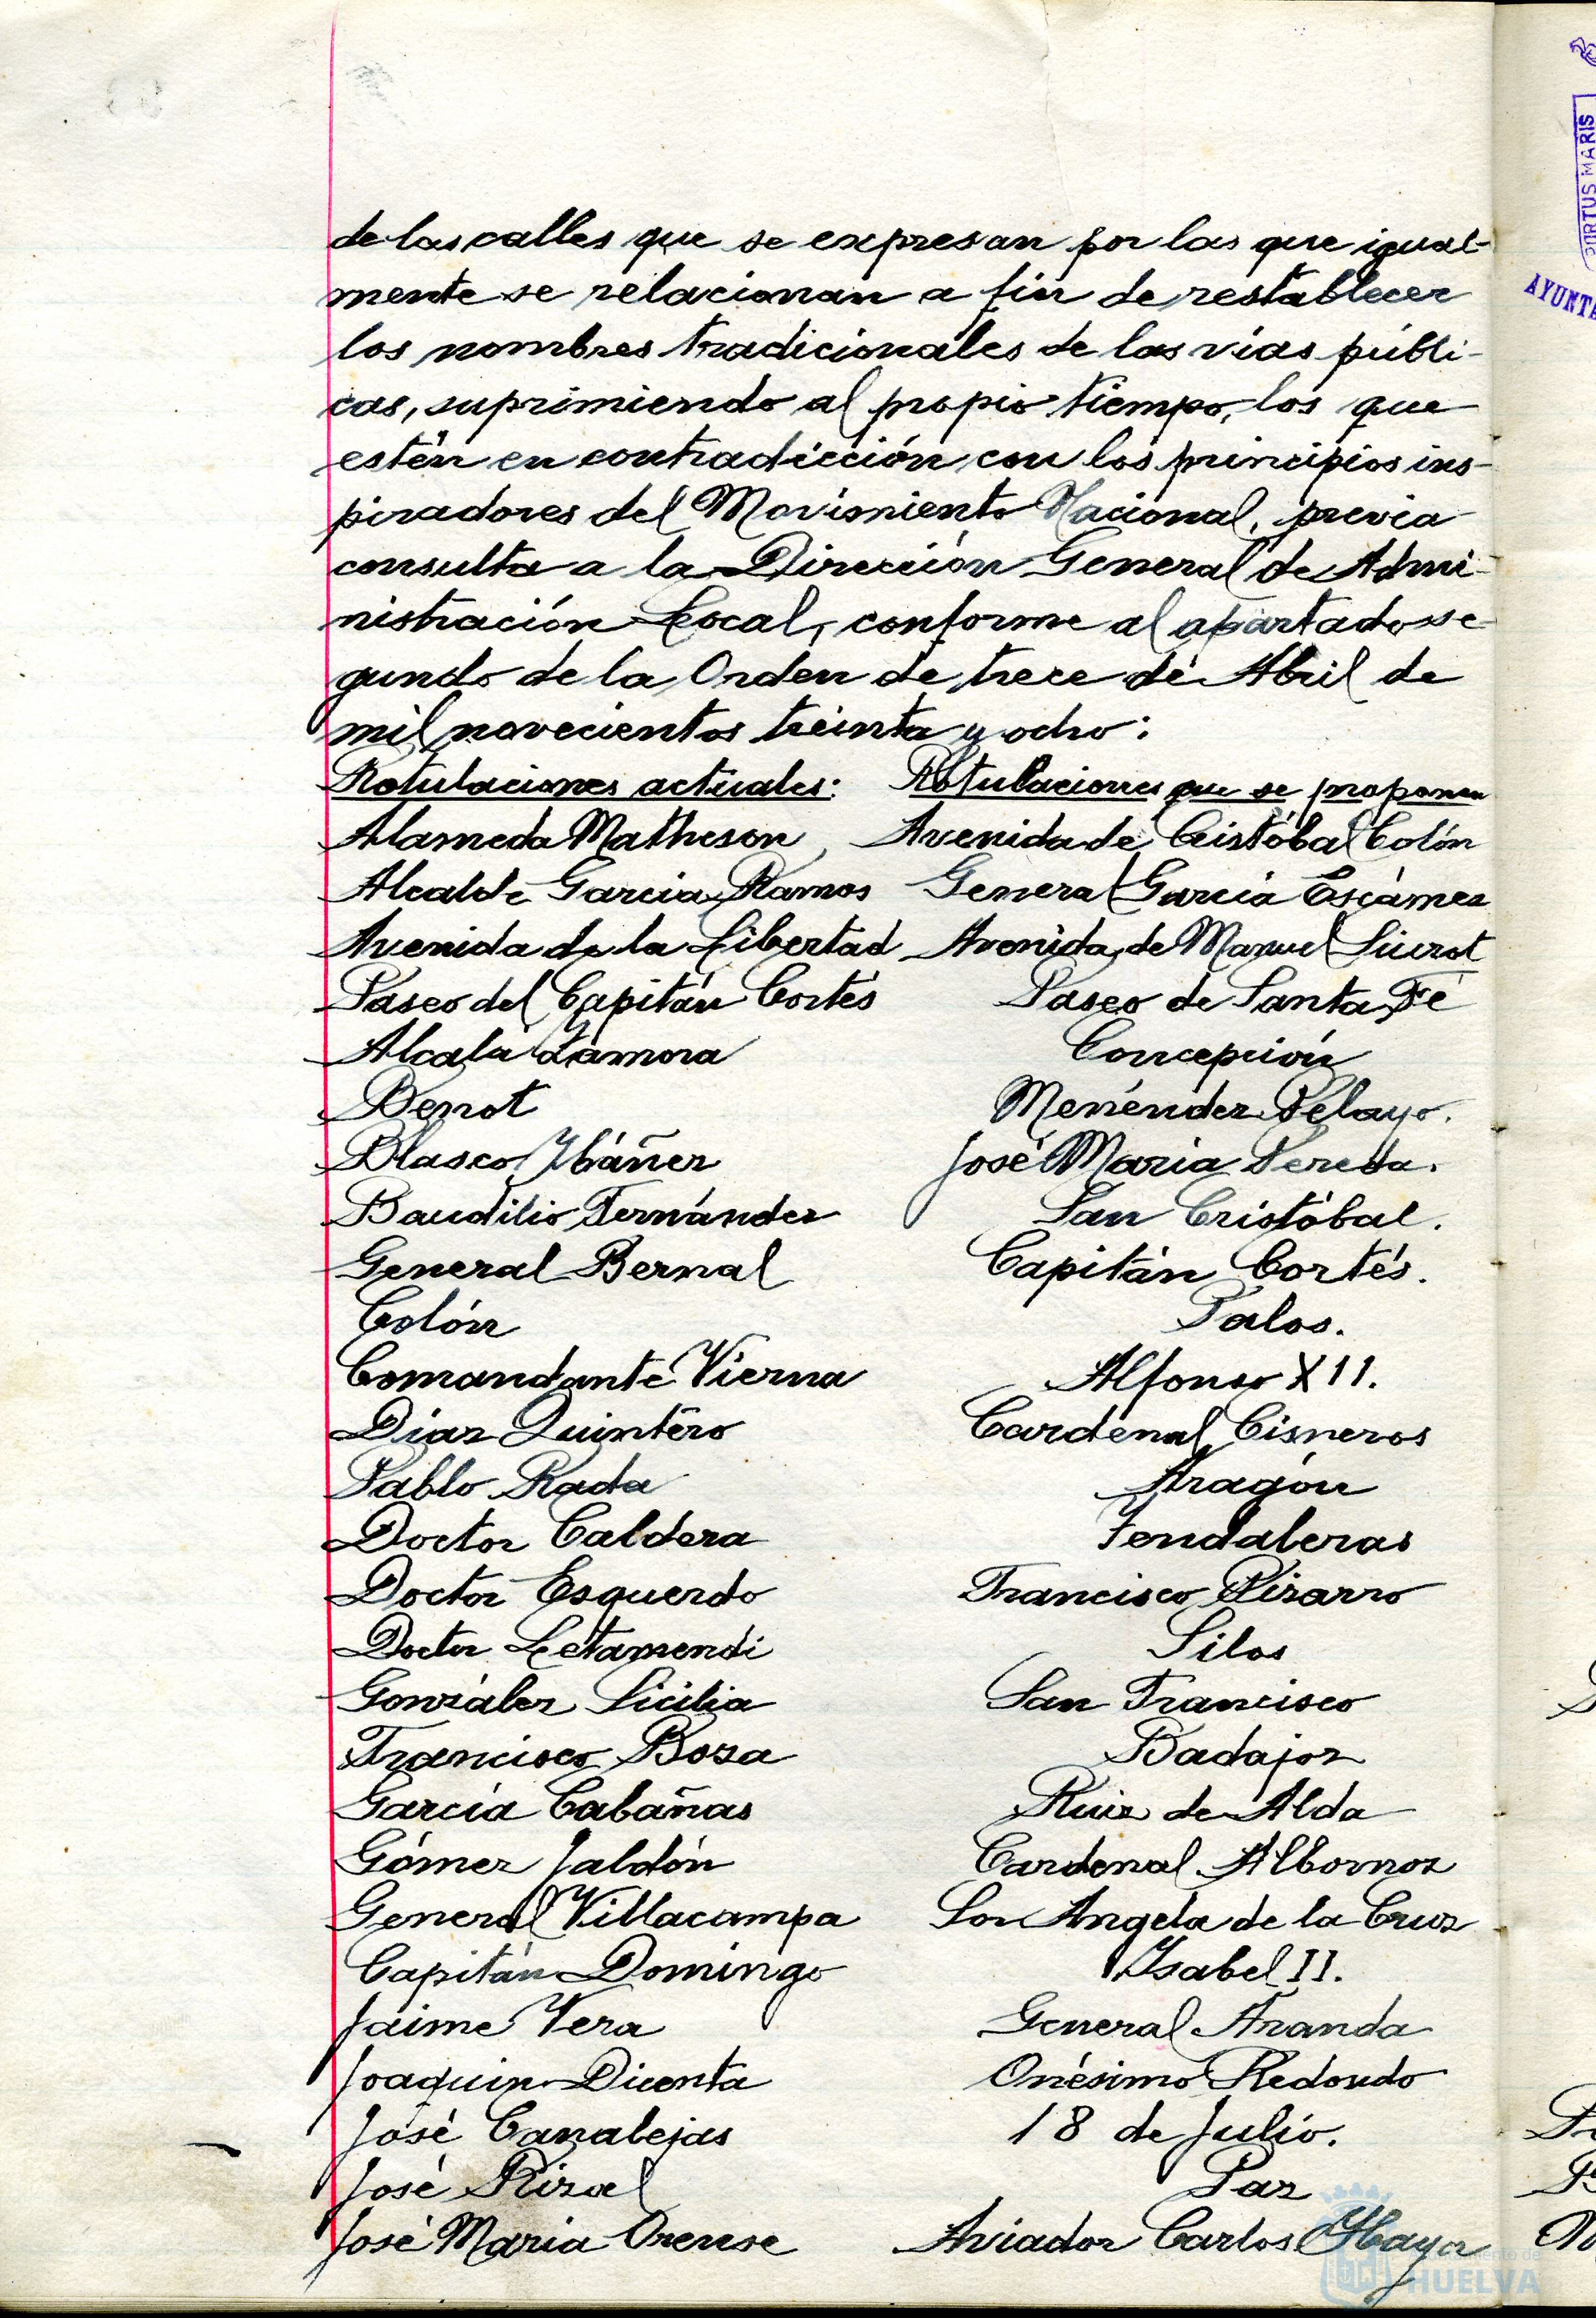 de las calles que se expresan por las que igual-
mente se relacionan a fin de restablecer
los nombres tradicionales de las vías públi-
cas, suprimiendo al propio tiempo, los que
estén en contradicción con los principios ins-
piradores del Movimiento Nacional, previa
consulta a la Dirección General de Admi-
nistración Local, conforme al apartado se-
gundo de la Orden de trece de Abril de
mil novecientos treinta y ocho:
Rotulaciones actuales: Rotulaciones que se proponen
Alameda Matheson, Avenida de Cristóbal Colón
Alcalde García Ramos General García Escámez
Avenida de la Libertad Avenida de Manuel Siurot
Paseo del Capitán Cortés Paseo de Santa Fé
Alcalá Zamora Concepción
Benot Menéndez Pelayo.
Blasco Ybáñez José María Pereda.
Baudilio Fernández San Cristóbal.
General Bernal Capitán Cortés.
Colón Palos.
Comandante Vierna Alfonso XII.
Díaz Quintero Cardenal Cisneros
Pablo Rada Aragón
Doctor Caldera Fendaleras
Doctor Esquerdo Francisco Pizarro
Doctor Letamendi Silos
González Sicilia San Francisco
Francisco Boza Badajoz
García Cabañas Ruiz de Alda
Gómez Jaldón Cardenal Albornoz
General Villacampa Sor Angela de la Cruz
Capitán Domingo Ysabel II.
Jaime Vera General Aranda
Joaquin Dicenta Onésimo Redondo
José Canalejas 18 de Julio.
José Rizal Paz
José María Orense Aviador Carlos Haya
PORTUS MARIS
AYUNTA
HUELVA